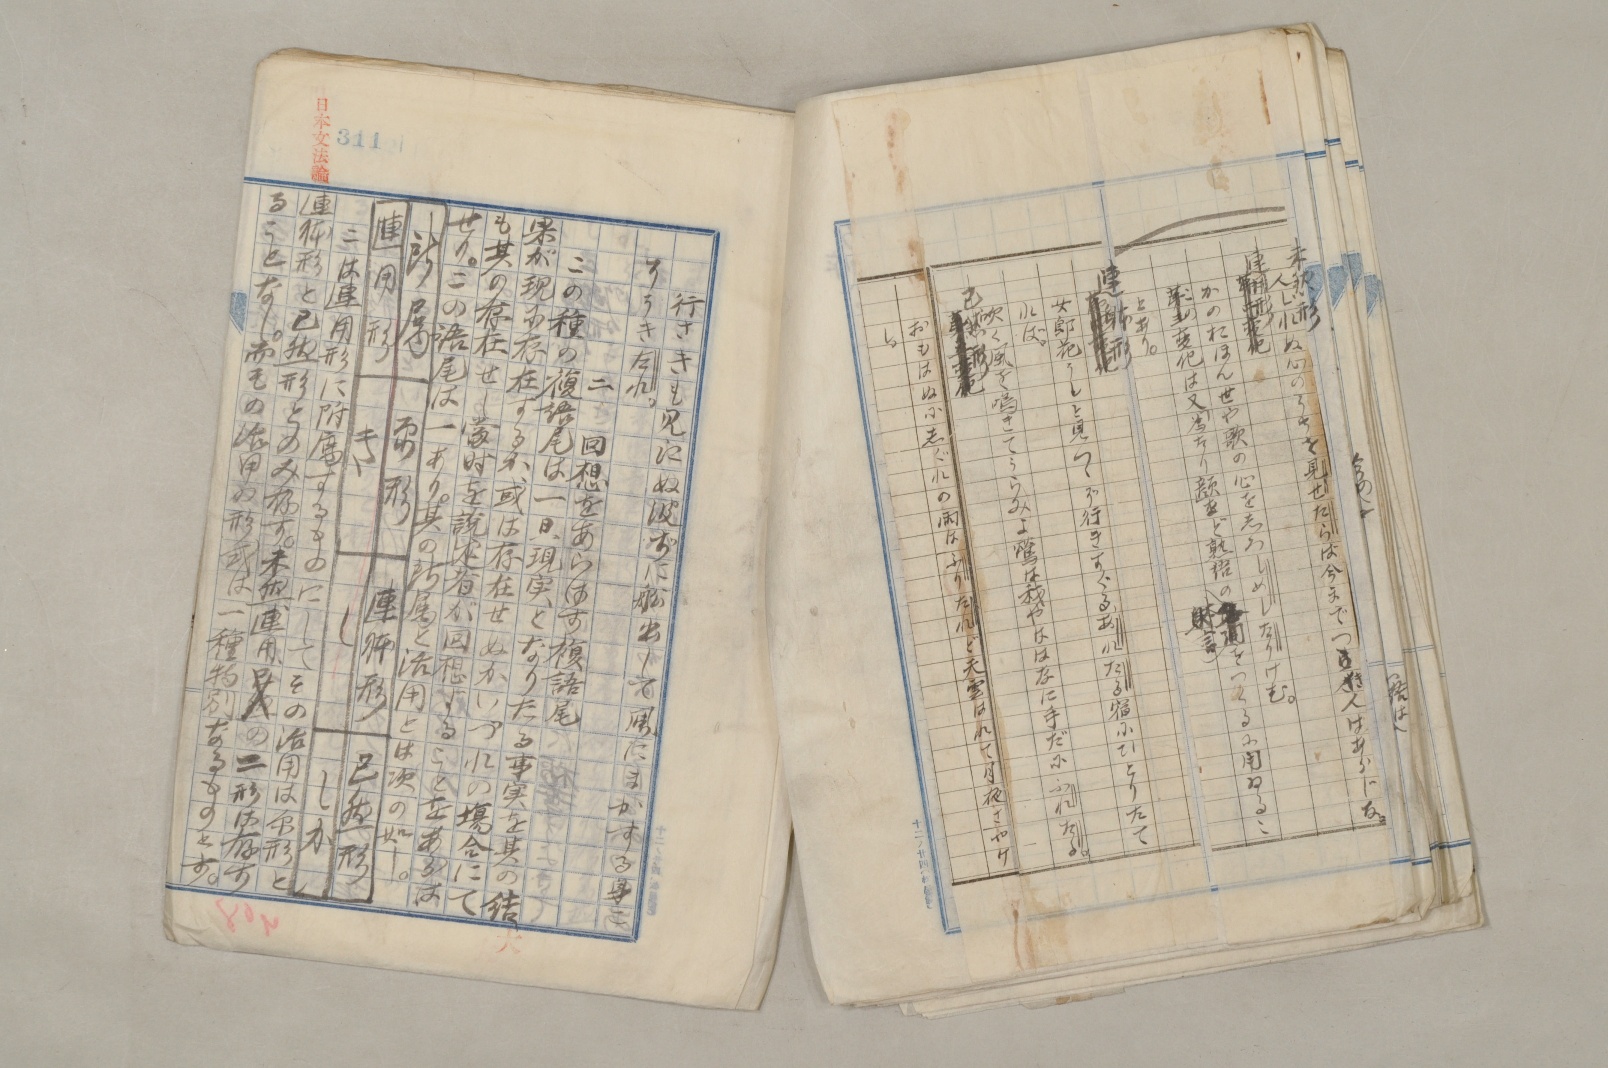 未然形
人しれぬ心のうちを見せたらば今まで人はあらじな。
連用形
かのおほん世や歌の心をしろしめしたりけむ。
変化は又
顔など熟語の
をつくるに用ゐるこ
とあり。
連体形
女郎花うしと見つゝぞ行きすぐるあれたる宿にひとりたて
れば。
吹く風を鳴きてうらみよ鶯は我やははなに手だにふれたる。
已然形
おもはぬにしぐれの雨はふりたれど天雲はれて月夜さやけ
し。
行さきも見えぬ波ぢに船出して風にまかする身こ
そうきたれ。
二 回想をあらはす複語尾
この種の複語尾は一旦、現実となりたる事実を其の結
果が現に存在するか、或は存在せぬかいづれの場合にて
も其の存在せし当時を説述者が回想することをあらは
せり。この語尾は一あり。其の所属と活用とは次の如し。
所属
示形
連体形
已然形
連用形
き
し
しか
二は連用形に附属するものにしてその活用は示形と
連体形と已然形とのみ存す。未然、連用の二形は存す
ることなし。而その活用の形式は一種特別なるものとす。
日本文法論
311